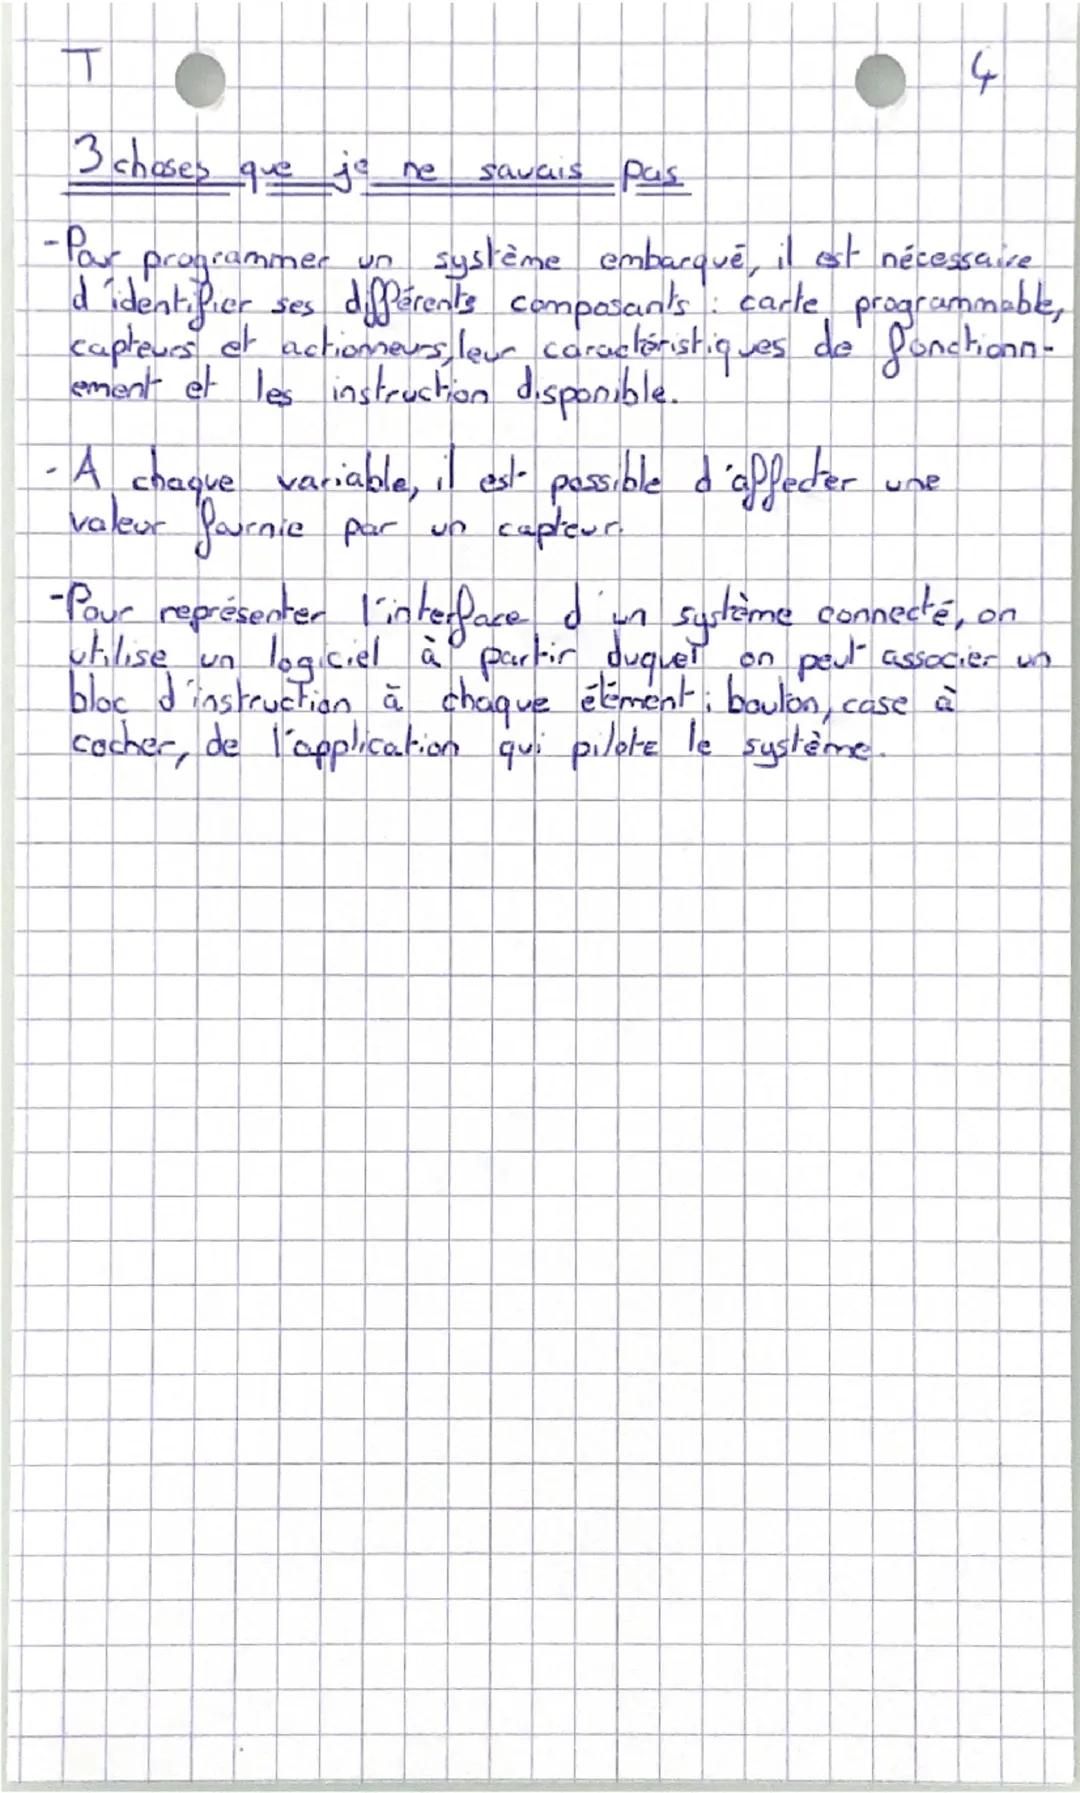 T 4
3 choses que je ne savais pas
- Pour programmer un système embarqué, il est nécessaire
d'identifier ses différents composants : carte programmable,
capteurs et actionneurs, leur caractéristiques de fonctionn-
ement et les instruction disponible.
- A chaque variable, il est possible d'affecter une
valeur fournie par un capteur.
- Pour représenter l'interface d'un système connecté, on
utilise un logiciel à partir duquel on peut associer un
bloc d'instruction à chaque élément ; bouton, case à
cocher, de l'application qui pilote le système.